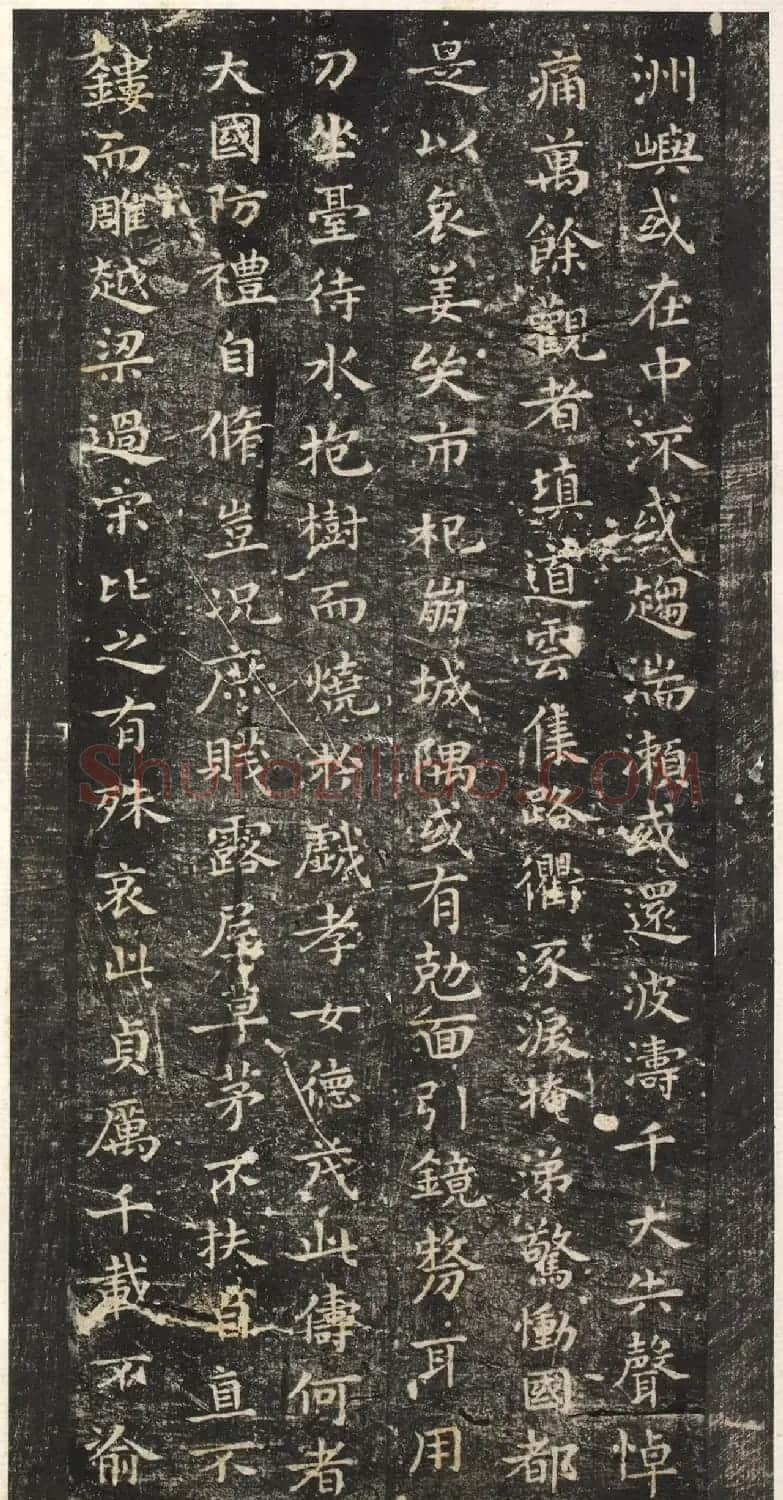 洲嶼或在中流或趨湍瀨或還波濤千夫失聲悼
痛萬餘觀者填道雲集路衢泺淚掩涕驚慟國都
是以哀姜哭市杞崩城隅或有勊面引鏡剺耳用
刀坐臺待水抱樹而燒於戲孝女德茂此儔何者
大國防禮自脩豈况庶賤露屋草茅不扶自直不
鏤而雕越梁過宋比之有殊哀此貞厲千載不渝
Shufaziliao.COM